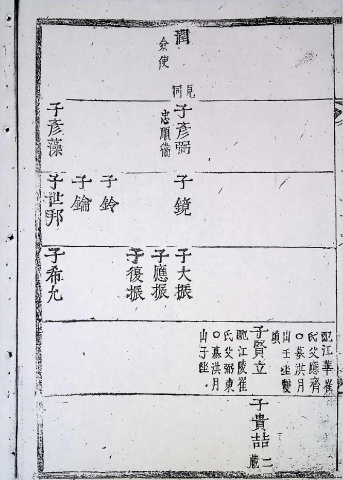 潤
僉使
見
洞
子彦弼
忠順衛
子彦藻
子鏡
子鈴
子鑰
子世邦
子大振
子應振
子復振
子希允
配江華崔
氏父應齊
○墓洪月
山壬坐雙
墳
子賢立
配江陵崔
氏父弼東
○墓洪月
山子坐
子貴喆
二
歲